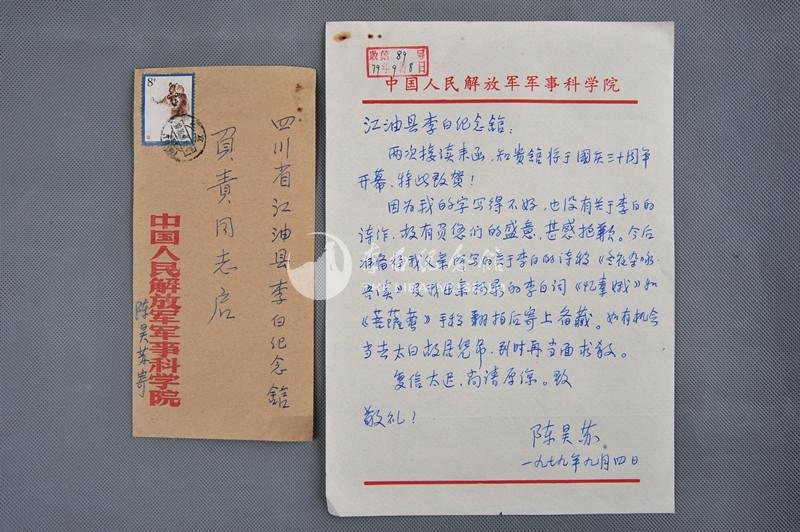 8分
四川省江油县李白纪念馆
负责同志启
中国人民解放军军事科学院
陈昊苏寄
收第 89 号
79年9月8日
中国人民解放军军事科学院
江油县李白纪念馆:
两次接读来函,知贵馆将于国庆三十周年
开幕,特此致贺!
因为我的字写得不好,也没有关于李白的
诗作,故有负您们的盛意,甚感抱歉。今后
准备将我父亲所写的关于李白的诗稿《冬夜杂咏·
》及我母亲抄录的李白词《忆秦娥》和
《菩萨蛮》手稿翻拍后寄上备藏。如有机会
当去太白故居凭吊,到时再当面求教。
复信太迟,尚请原谅。致
敬礼!
陈昊苏
一九七九年九月四日
李白纪念馆